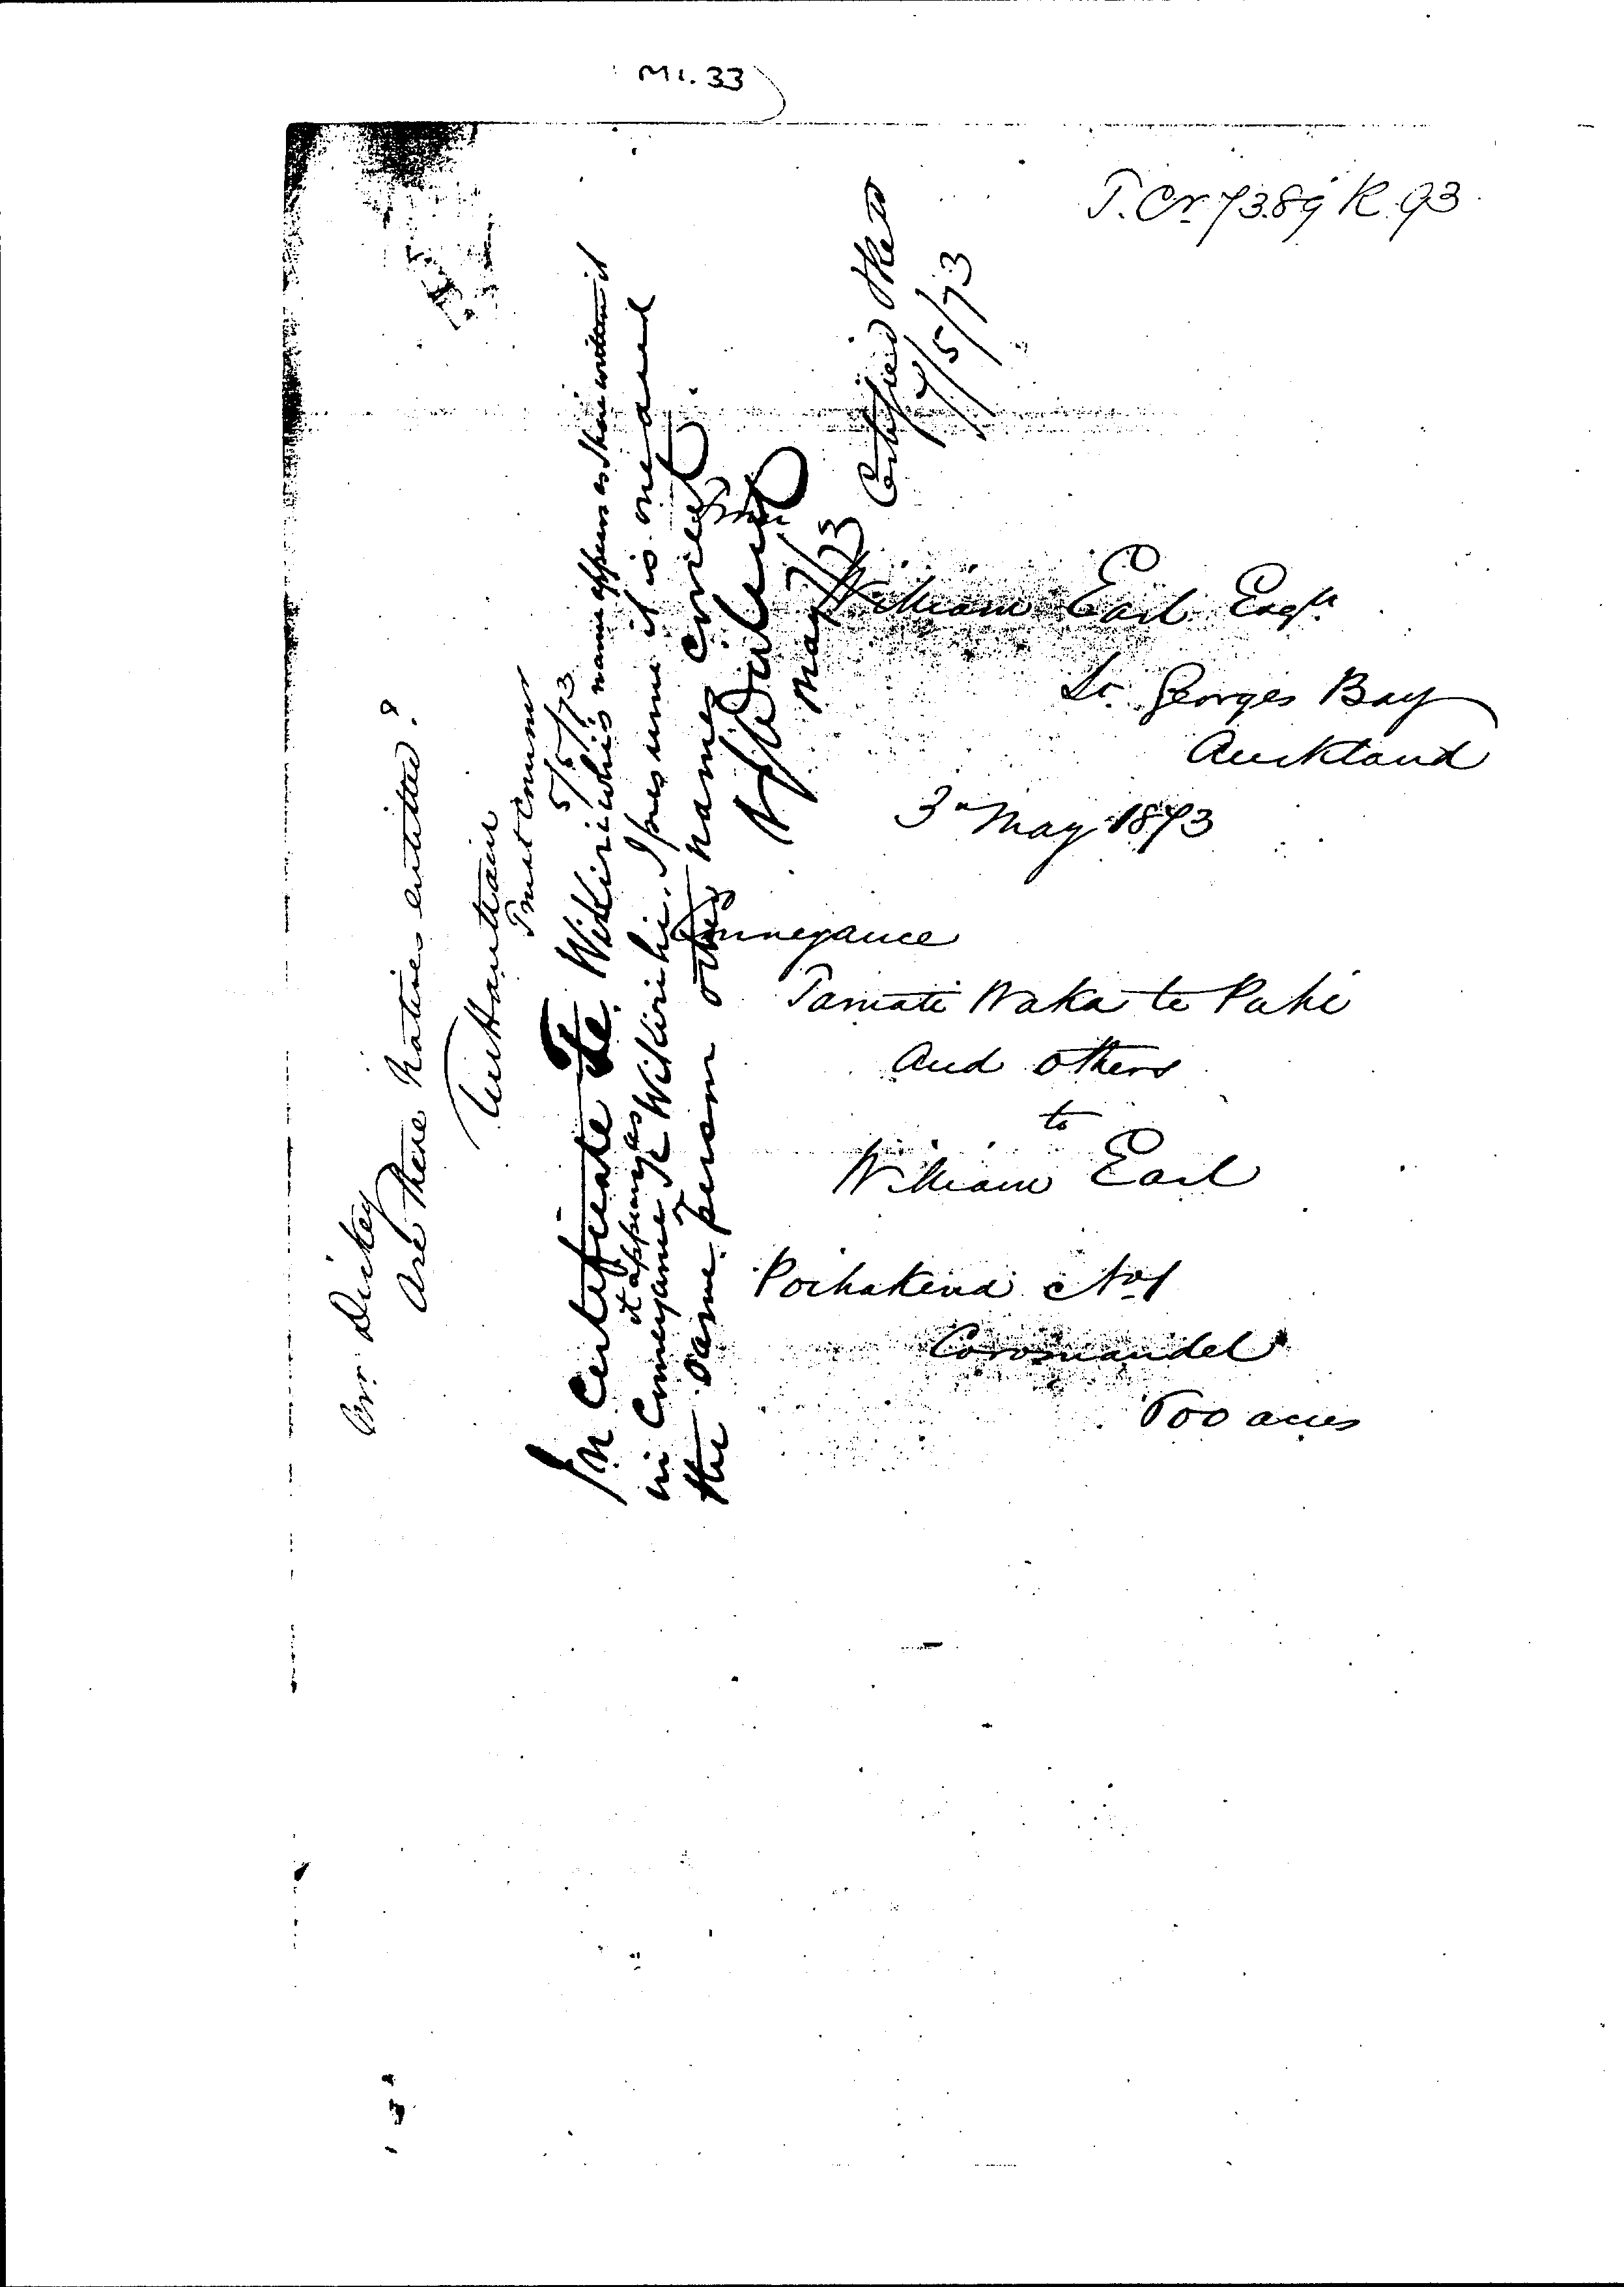 M1.33
T. Cr. 73.89 R. 93
From
William Earl Esqre
St. Georges Bay
Auckland
3d May 1873
Conveyance
Tamati Waka te Puhi
and others
to
William Earl
Poihakena No 1
Coromandel
500 acres
Mr. Dickey
Are these Natives entitled?
Trust Commr
5/5/73
In Certificate Te Wikiriwhi's name appears as I have written it
it appears as
in Conveyance Te Wikirihi. I presume it is one and
the same person other names correct.
May 7/73
Certified
7/5/73